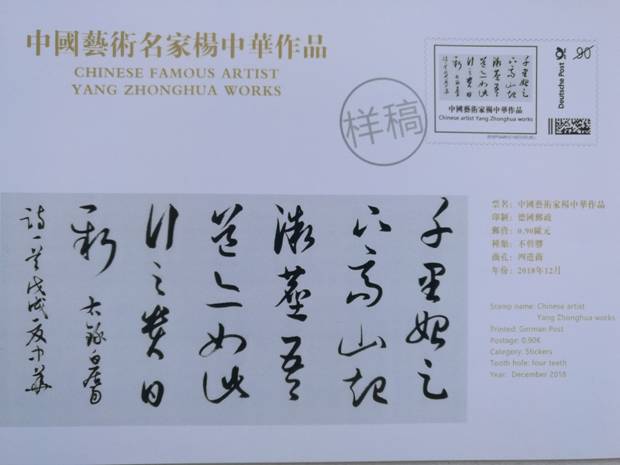 中國藝術名家楊中華作品
CHINESE FAMOUS ARTIST
YANG ZHONGHUA WORKS
样稿
中國藝術家楊中華作品
Chinese artist Yang Zhonghua works
Deutsche Post
90
千里始足
下高山起
微塵吾
道亦如此
行之貴日
新
詩一首戊戌夏中華
票名：中國藝術家楊中華作品
印製：德國郵政
郵資：0.90歐元
種類：不幹膠
齒孔：四邊齒
年份：2018年12月
Stamp name: Chinese artist
Yang Zhonghua works
Printed: German Post
Postage: 0.90€
Category: Stickers
Tooth hole: four teeth
Year: December 2018